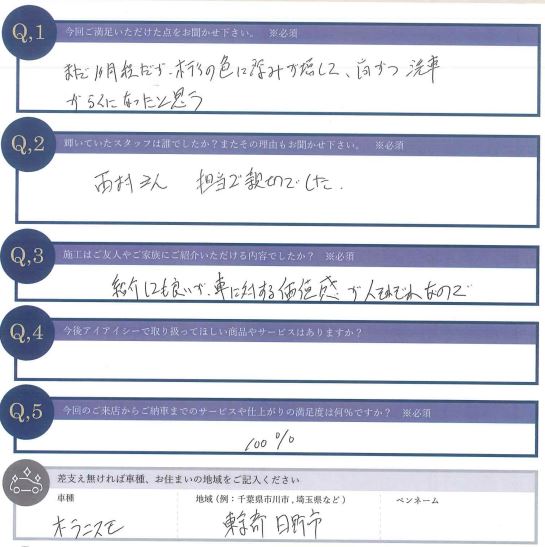 Q,1 今回ご満足いただけた点をお聞かせ下さい。 ※必須
まだ1ヶ月程だが、ボディの色に深みが増して、尚かつ 洗車
がらくになったと思う
Q,2 輝いていたスタッフは誰でしたか？またその理由もお聞かせ下さい。 ※必須
西村さん 担当で親切でした.
Q,3 施工はご友人やご家族にご紹介いただける内容でしたか？ ※必須
紹介にも良いが、車に対する価値感が人それぞれなので
Q,4 今後アイアイシーで取り扱ってほしい商品やサービスはありますか？
Q,5 今回のご来店からご納車までのサービスや仕上がりの満足度は何％ですか？ ※必須
100%
差支え無ければ車種、お住まいの地域をご記入ください
車種 地域（例：千葉県市川市，埼玉県など） ペンネーム
東京都 日野市